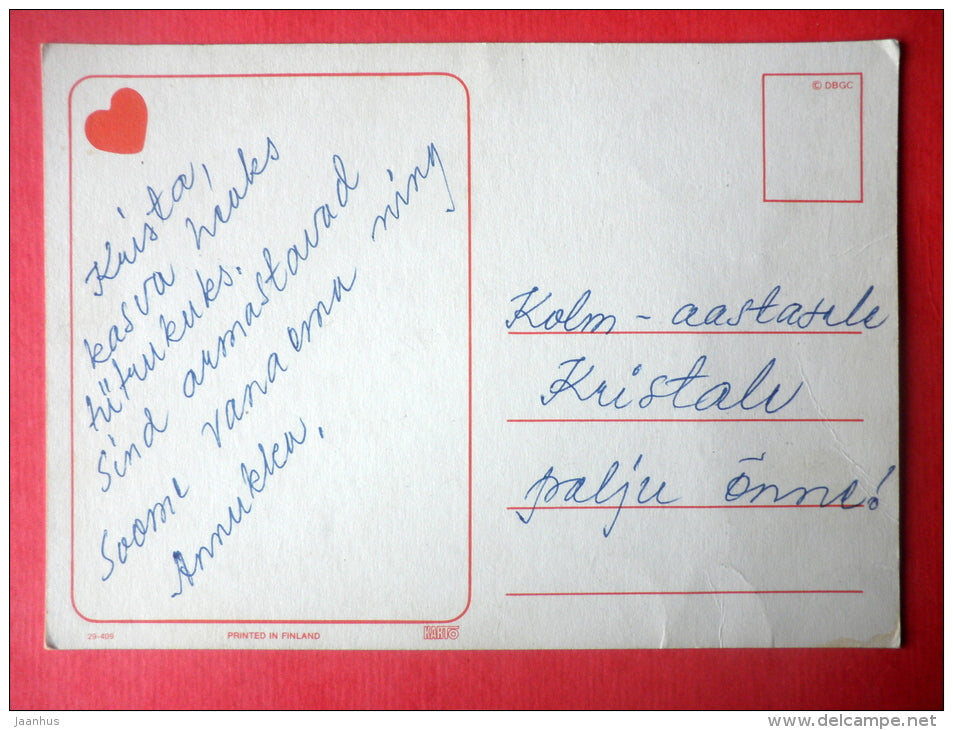 Krista,
kasva heaks
tütrukuks.
Sind armastavad
Soome vanaema ning
Annukka.
© DBGC
Kolm-aastasele
Kristale
palju õnne!
29-409
PRINTED IN FINLAND
KARTO
Jaanhus
www.delcampe.net